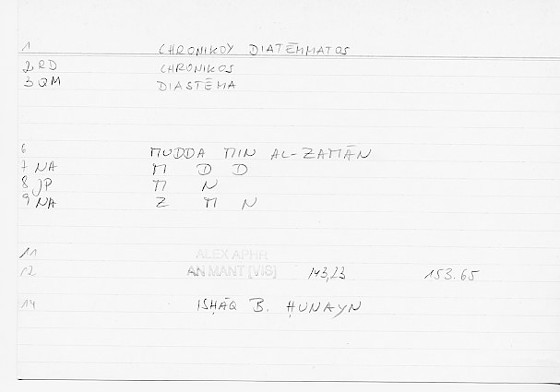 1 CHRONIKOY DIATĒMMATOS
2 RD CHRONIKOS
3 QM DIASTĒMA
6 MUDDA MIN AL-ZAMĀN
7 NA M D D
8 JP M N
9 NA Z M N
11 ALEX APHR
12 AN MANT [VIS] 143,23 153.65
14 ISḤĀQ B. ḤUNAYN